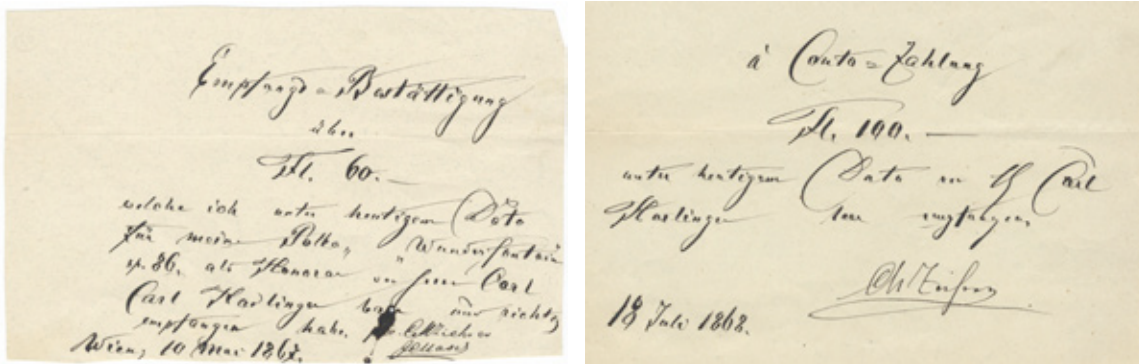 Empfangs=Bestättigung
über
Fl. 60.—
welche ich unter heutigem Dato
für meine Polka „Wunderfontaine
op. 86. als Honorar von Herrn Carl
Carl Haslinger baar und richtig
empfangen habe.
Wien, 10 Mai 1867.
à Conto=Zahlung
Fl. 100.—
unter heutigem Dato von H Carl
Haslinger baar empfangen,
18 Juli 1868.